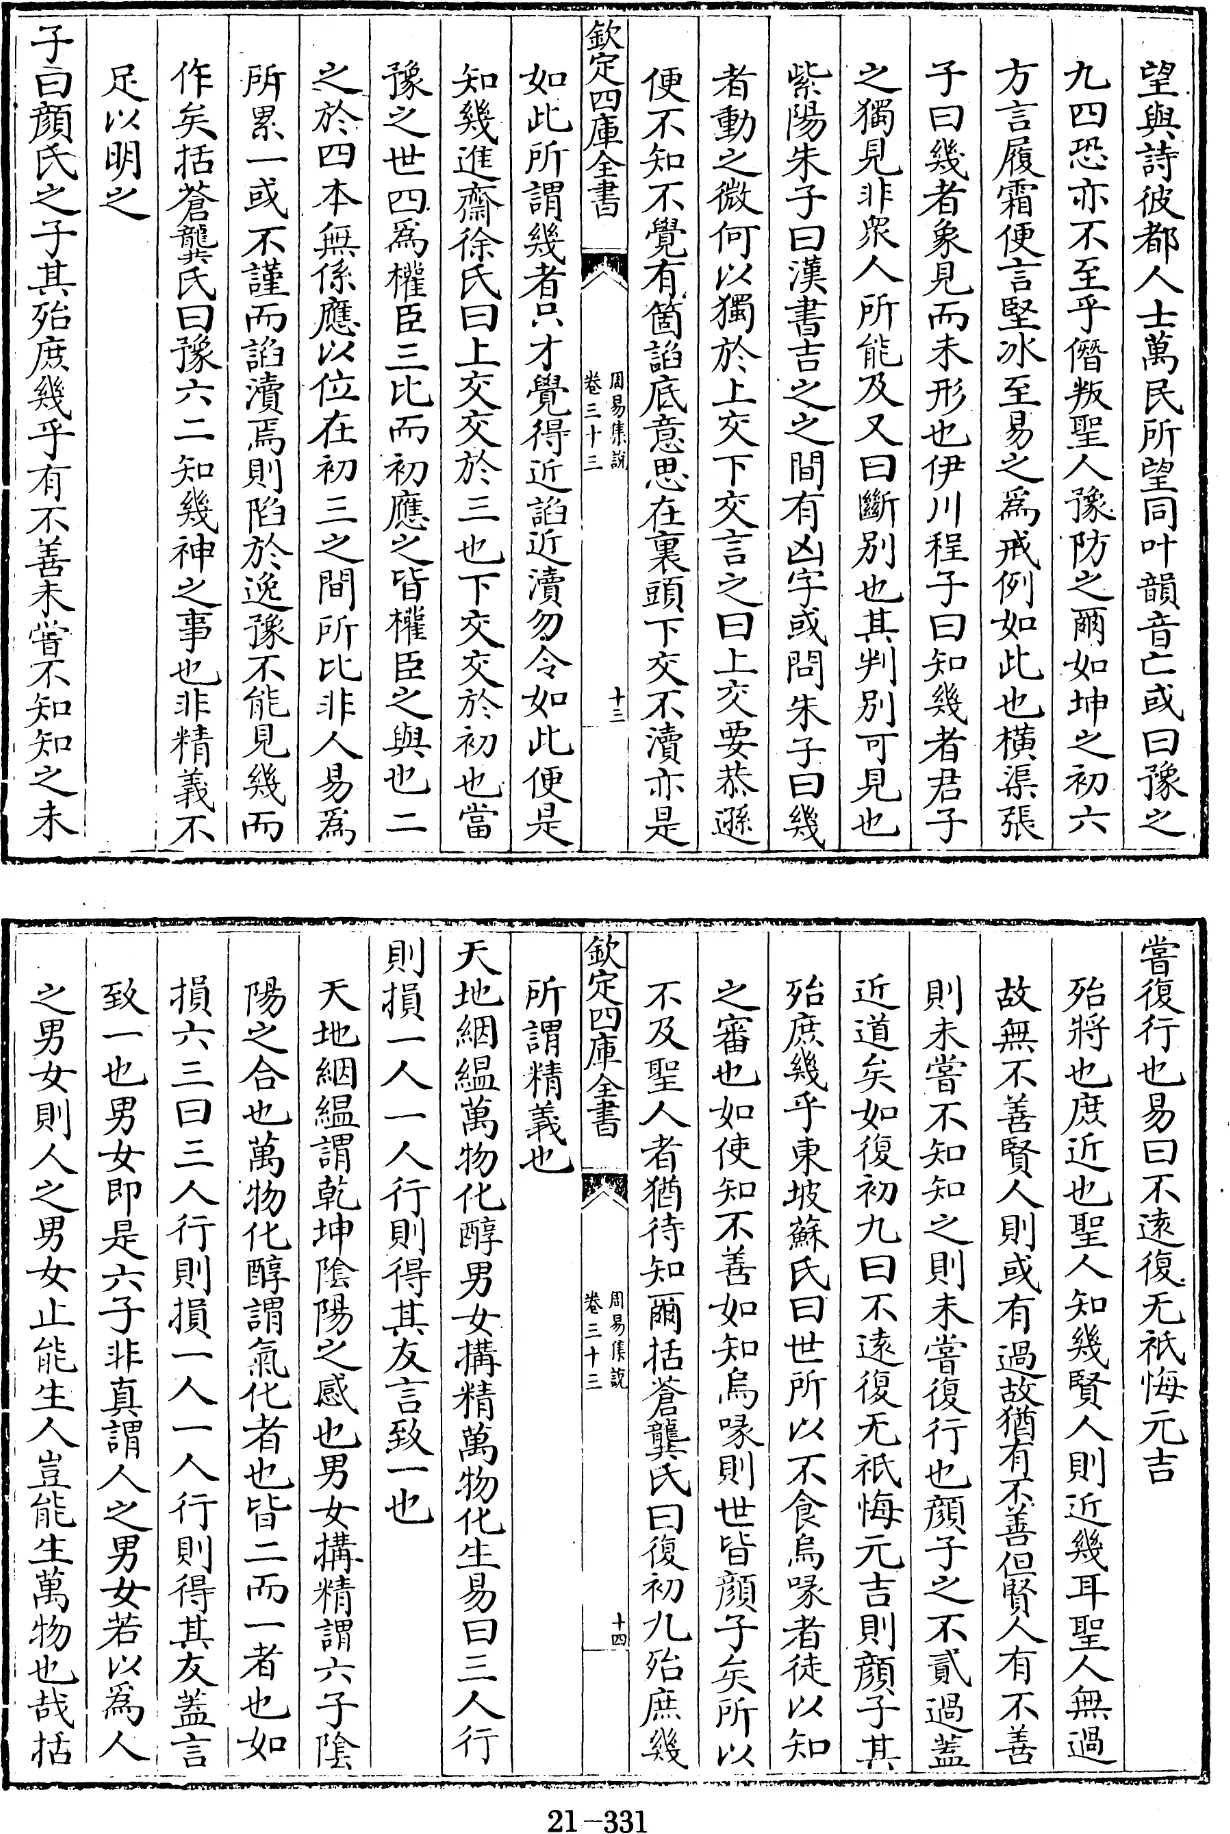 望與詩彼都人士萬民所望同叶韻音亡或曰豫之
九四恐亦不至乎僭叛聖人豫防之爾如坤之初六
方言履霜便言堅冰至易之為戒例如此也橫渠張
子曰幾者象見而未形也伊川程子曰知幾者君子
之獨見非衆人所能及又曰斷别也其判别可見也
紫陽朱子曰漢書吉之之間有凶字或問朱子曰幾
者動之微何以獨於上交下交言之曰上交要恭遜
便不知不覺有箇諂底意思在裏頭下交不瀆亦是
欽定四庫全書
周易集說
卷三十三
十三
如此所謂幾者只才覺得近諂近瀆勿令如此便是
知幾進齋徐氏曰上交交於三也下交交於初也當
豫之世四為權臣三比而初應之皆權臣之與也二
之於四本無係應以位在初三之間所比非人易為
所累一或不謹而諂瀆焉則陷於逸豫不能見幾而
作矣括蒼龔氏曰豫六二知幾神之事也非精義不
足以明之
子曰顔氏之子其殆庶幾乎有不善未嘗不知知之未
嘗復行也易曰不遠復无祇悔元吉
殆將也庶近也聖人知幾賢人則近幾耳聖人無過
故無不善賢人則或有過故猶有不善但賢人有不善
則未嘗不知知之則未嘗復行也顔子之不貳過蓋
近道矣如復初九曰不遠復无祇悔元吉則顔子其
殆庶幾乎東坡蘇氏曰世所以不食烏喙者徒以知
之審也如使知不善如知烏喙則世皆顔子矣所以
不及聖人者猶待知爾括蒼龔氏曰復初九殆庶幾
欽定四庫全書
周易集說
卷三十三
十四
所謂精義也
天地絪縕萬物化醇男女搆精萬物化生易曰三人行
則損一人一人行則得其友言致一也
天地絪縕謂乾坤陰陽之感也男女搆精謂六子陰
陽之合也萬物化醇謂氣化者也皆二而一者也如
損六三曰三人行則損一人一人行則得其友蓋言
致一也男女即是六子非真謂人之男女若以為人
之男女則人之男女止能生人豈能生萬物也哉括
21-331